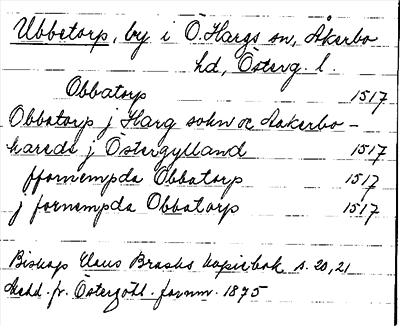 Ubbetorp, by i Ö. Hargs sn, Åkerbo
hd, Österg. l.
Obbatorp 1517
Obbatorp j Harg sokn oc Aakerbo-
haredz j Östergylland 1517
ffornempda Obbatorp 1517
j fornempda Obbatorp 1517
Biskop Hans Brasks kopiebok s. 20, 21
Medd. fr. Östergötl. fornm. 1875